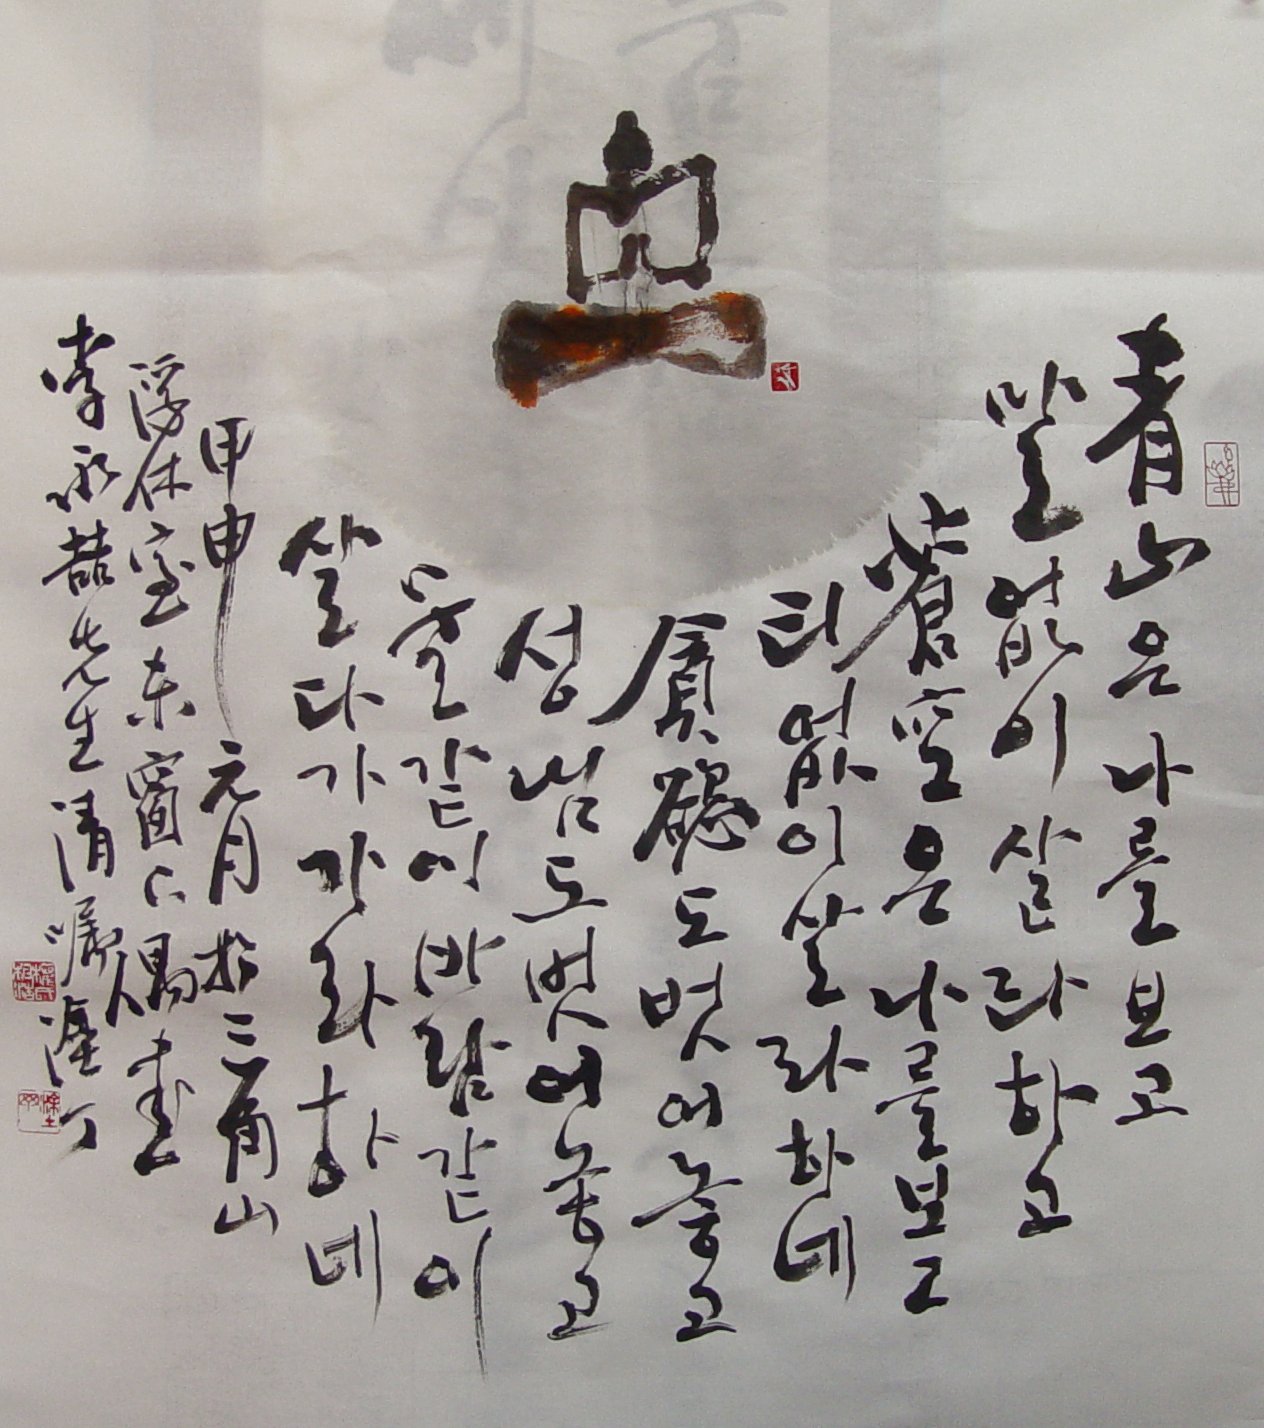 青山은나를보고
말없이살라하고
蒼空은나를보고
티없이살라하네
貪慾도벗어놓고
성냄도벗어놓고
물같이바람같이
살다가가라하네
甲申元月於三角山
浮休室東窗下
李永喆先生清嘱